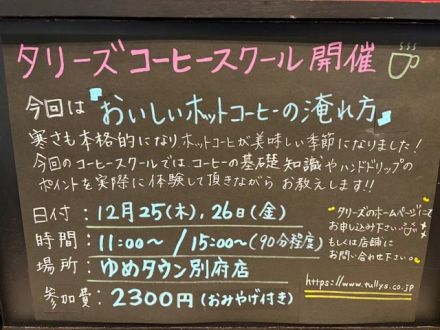 タリーズコーヒースクール開催
今回は "おいしいホットコーヒーの淹れ方"
寒さも本格的になりホットコーヒーが美味しい季節になりました!
今回のコーヒースクールでは、コーヒーの基礎知識やハンドドリップの
ポイントを実際に体験して頂きながらお教えします!!
日付:12月25(木)、26日(金)
時間:11:00〜/15:00〜(90分程度)
場所:ゆめタウン別府店
参加費:2300円(おみやげ付き)
タリーズのホームページにて
お申し込み下さい
もしくは店舗に
お問い合わせ下さい。
https://www.tullys.co.jp